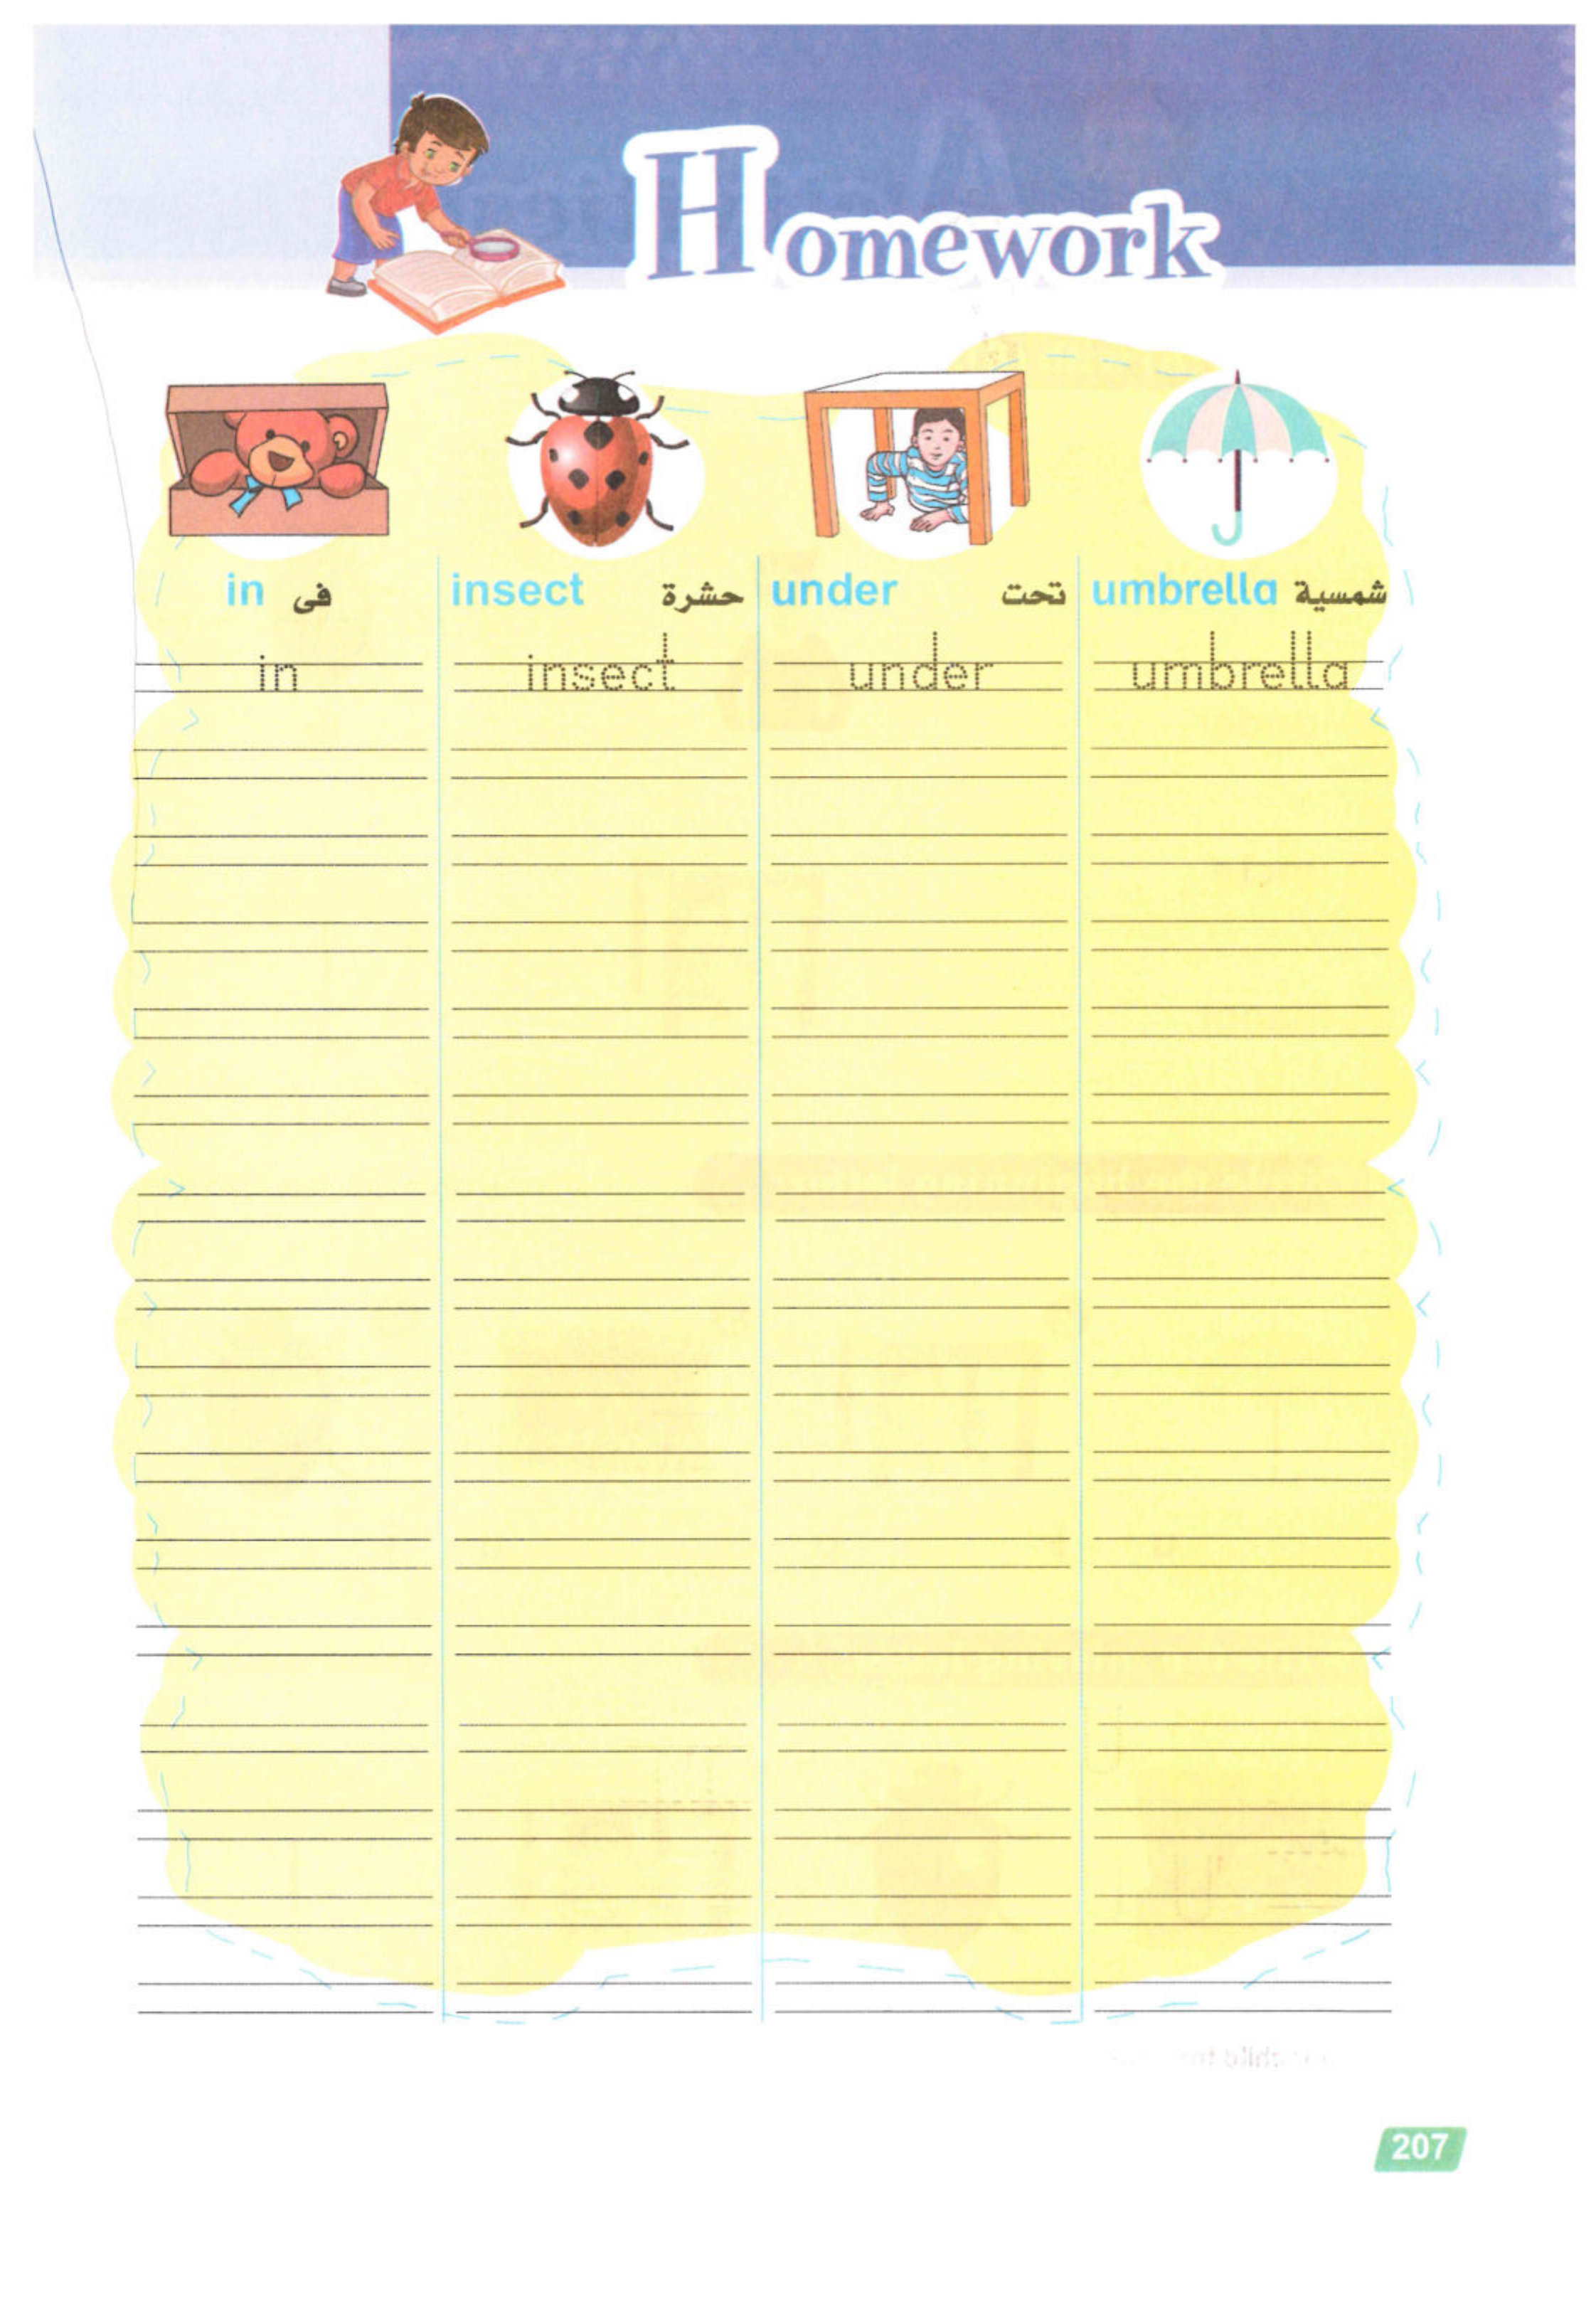 Homework
in فى insect حشرة under تحت umbrella شمسية
in insect under umbrella
207